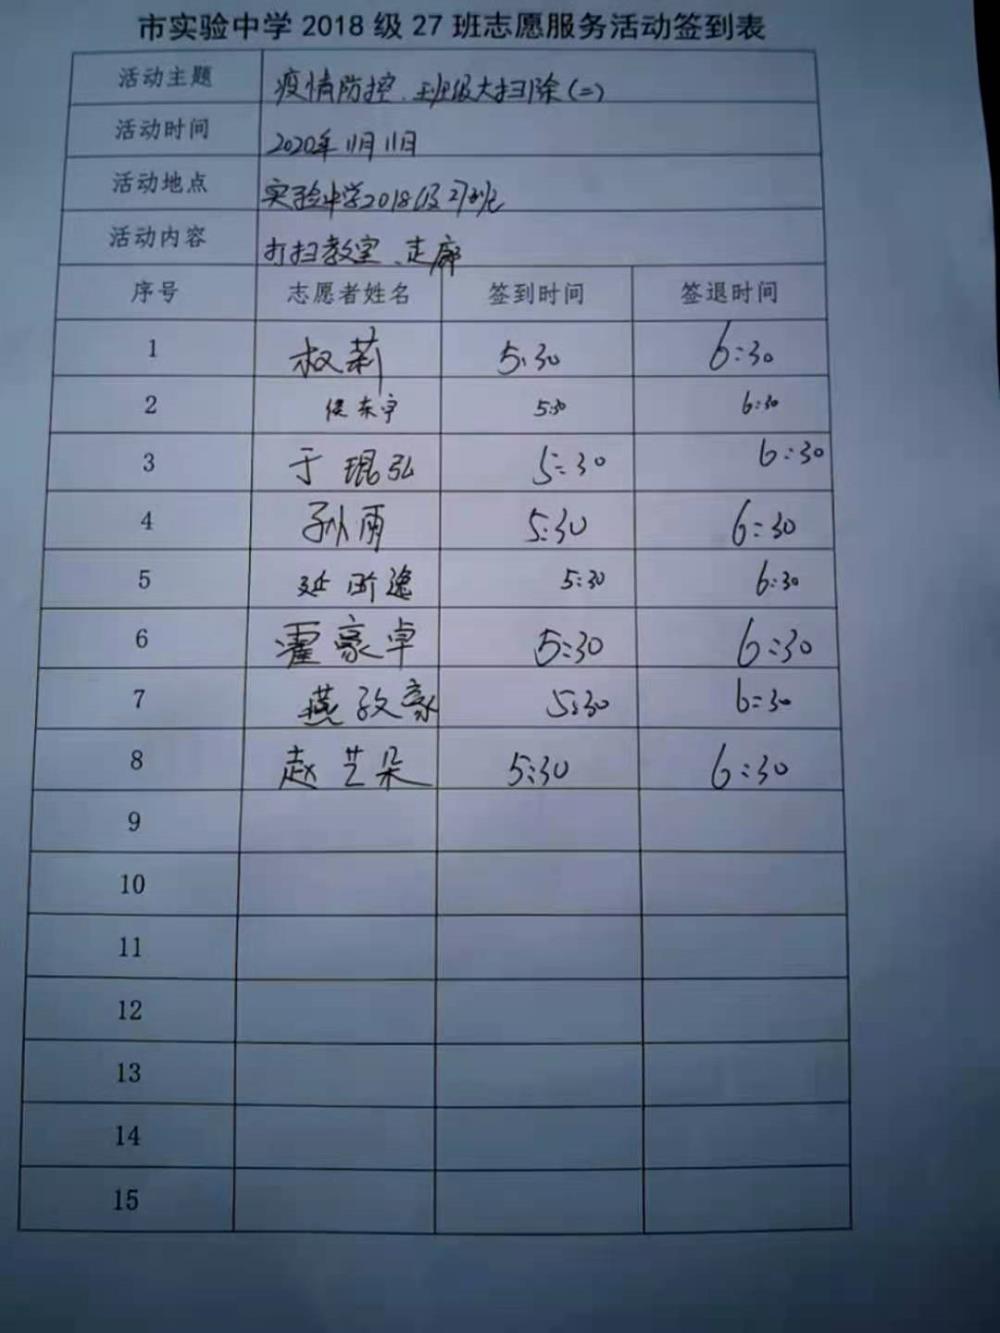 市实验中学2018级27班志愿服务活动签到表
活动主题 疫情防控、班级大扫除(二)
活动时间 2020年11月11日
活动地点 实验中学2018级27班
活动内容 打扫教室、走廊
序号 志愿者姓名 签到时间 签退时间
1 权莉 5:30 6:30
2 侯东宇 5:30 6:30
3 于琨弘 5:30 6:30
4 孙雨 5:30 6:30
5 延 5:30 6:30
6 霍豪卓 5:30 6:30
7 燕孜豪 5:30 6:30
8 赵艺朵 5:30 6:30
9
10
11
12
13
14
15